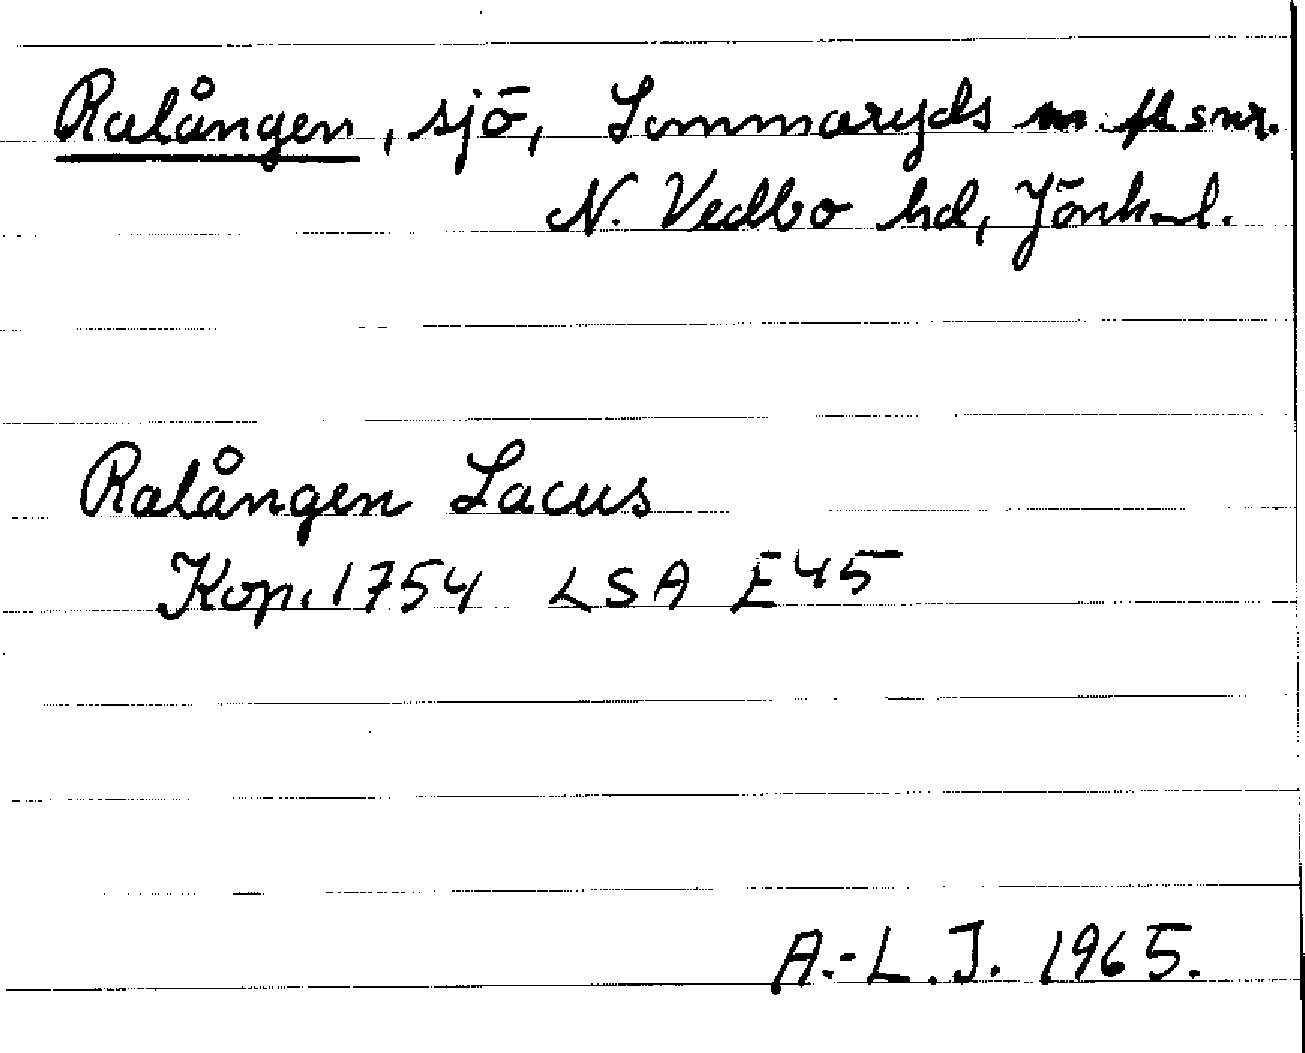 Ralången, sjö, Sommaryds m. fl snr.
N. Vedbo hd, Jönk. l.
Ralången Lacus
Kop. 1754 LSA E45
A.-L.J. 1965.